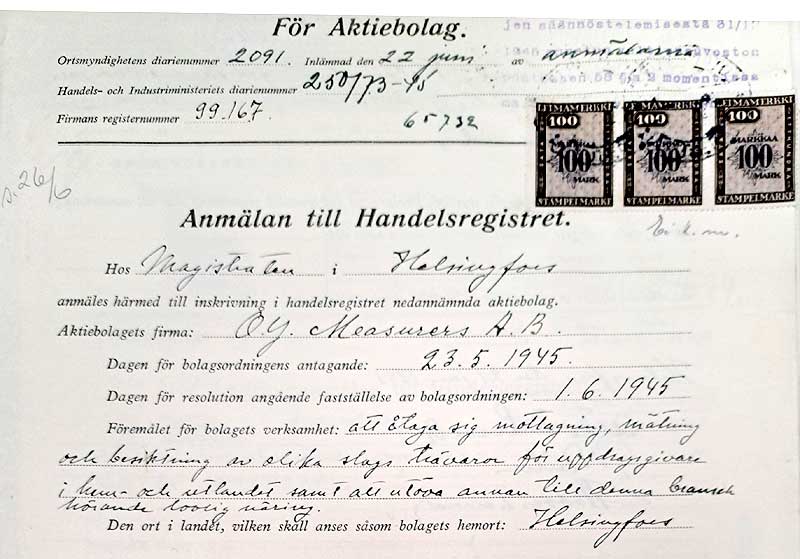 För Aktiebolag.
jen säännöstelemisestä 31/1
Ortsmyndighetens diarienummer 2091. Inlämnad den 22 juni av
momentissa
Handels- och Industriministeriets diarienummer 250/73-45
Firmans registernummer 99.167.
65732
LEIMAMERKKI LEIMAMERKKI LEIMAMERKKI
100 100 100
MARKKAA MARKKAA MARKKAA
100 100 100
MARK MARK MARK
STÄMPELMÄRKE STÄMPELMÄRKE STÄMPELMÄRKE
s. 26/6
Anmälan till Handelsregistret.
Hos Magistraten i Helsingfors
anmäles härmed till inskrivning i handelsregistret nedannämnda aktiebolag.
Aktiebolagets firma: O.Y. Measurers A.B.
Dagen för bolagsordningens antagande: 23.5.1945.
Dagen för resolution angående fastställelse av bolagsordningen: 1.6.1945
Föremålet för bolagets verksamhet: att åtaga sig mottagning, mätning
och besiktning av olika slags trävaror för uppdragsgivare
i hem- och utlandet samt att utöva annan till denna bransch
hörande lovlig näring.
Den ort i landet, vilken skall anses såsom bolagets hemort: Helsingfors